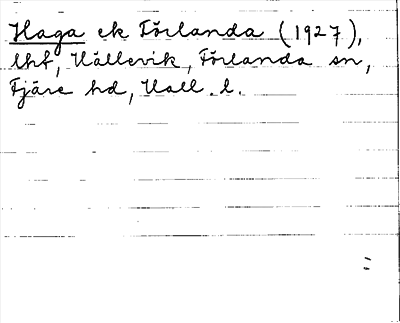 Haga ek Förlanda (1927),
lhf, Källevik, Förlanda sn,
Fjäre hd, Hall. l.